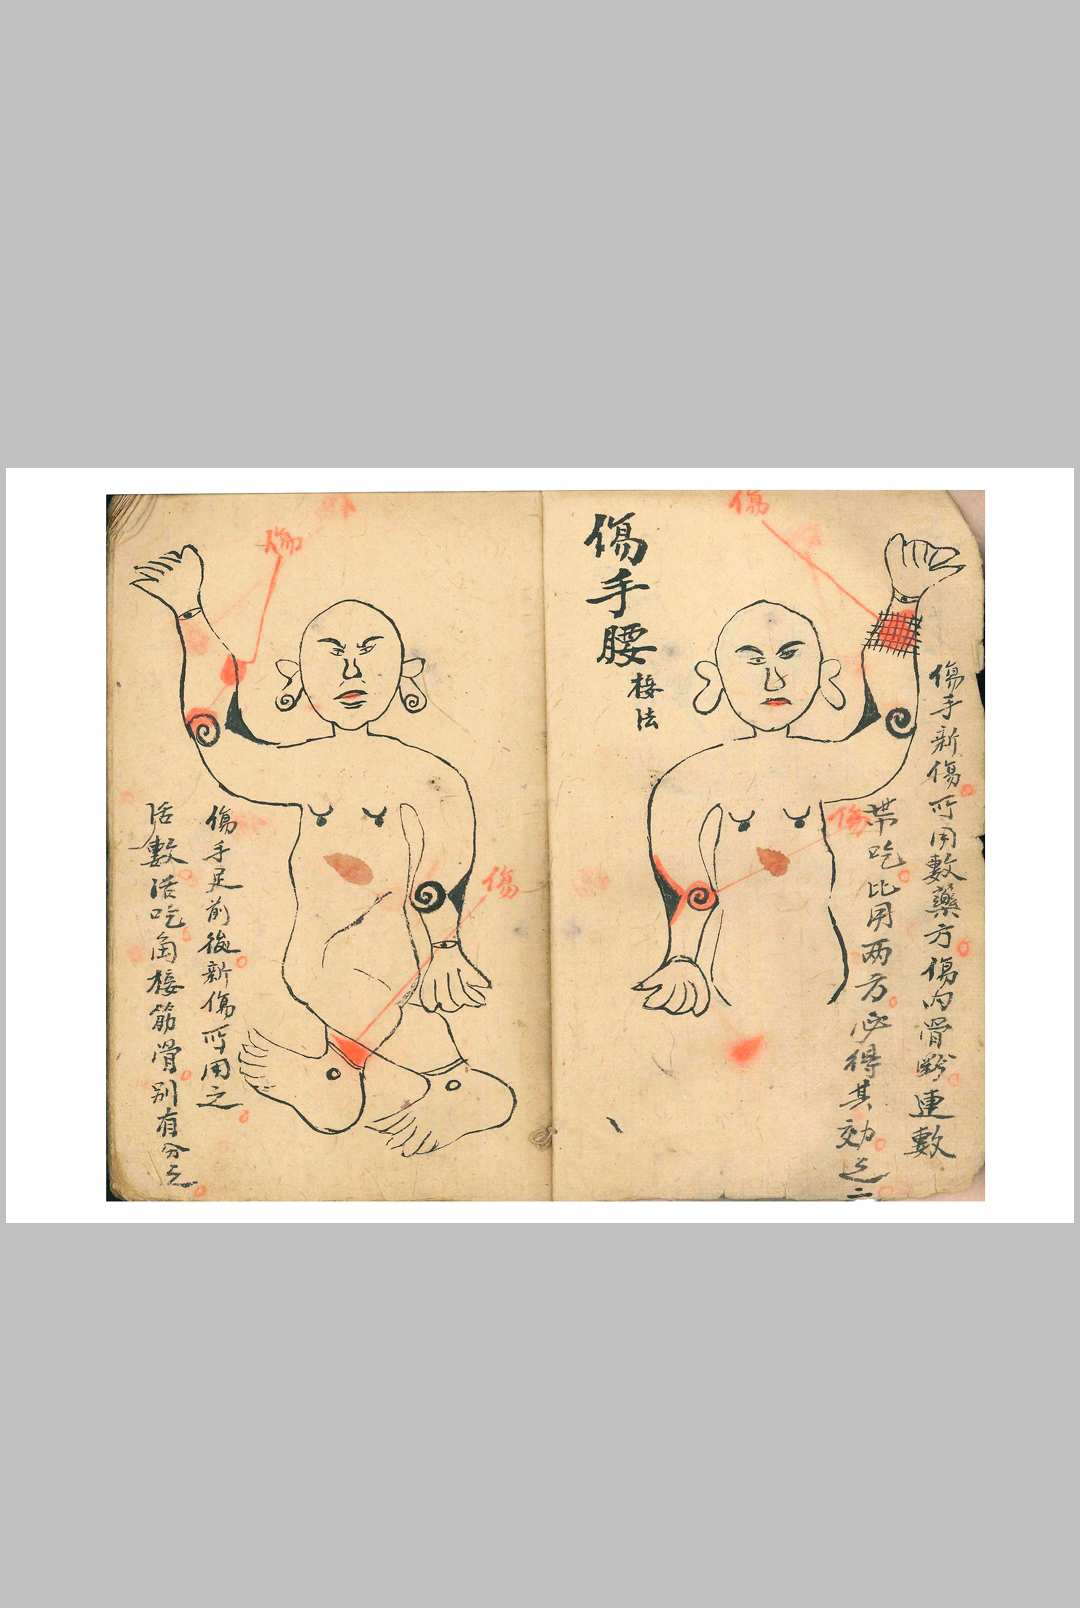 傷手腰
接法
傷
傷手新傷所用數藥方傷内骨斷連數
帶吃比用两方必得其効之二
傷
傷
傷
傷手足前後新傷所用之
活數活吃角接筋骨別有分之